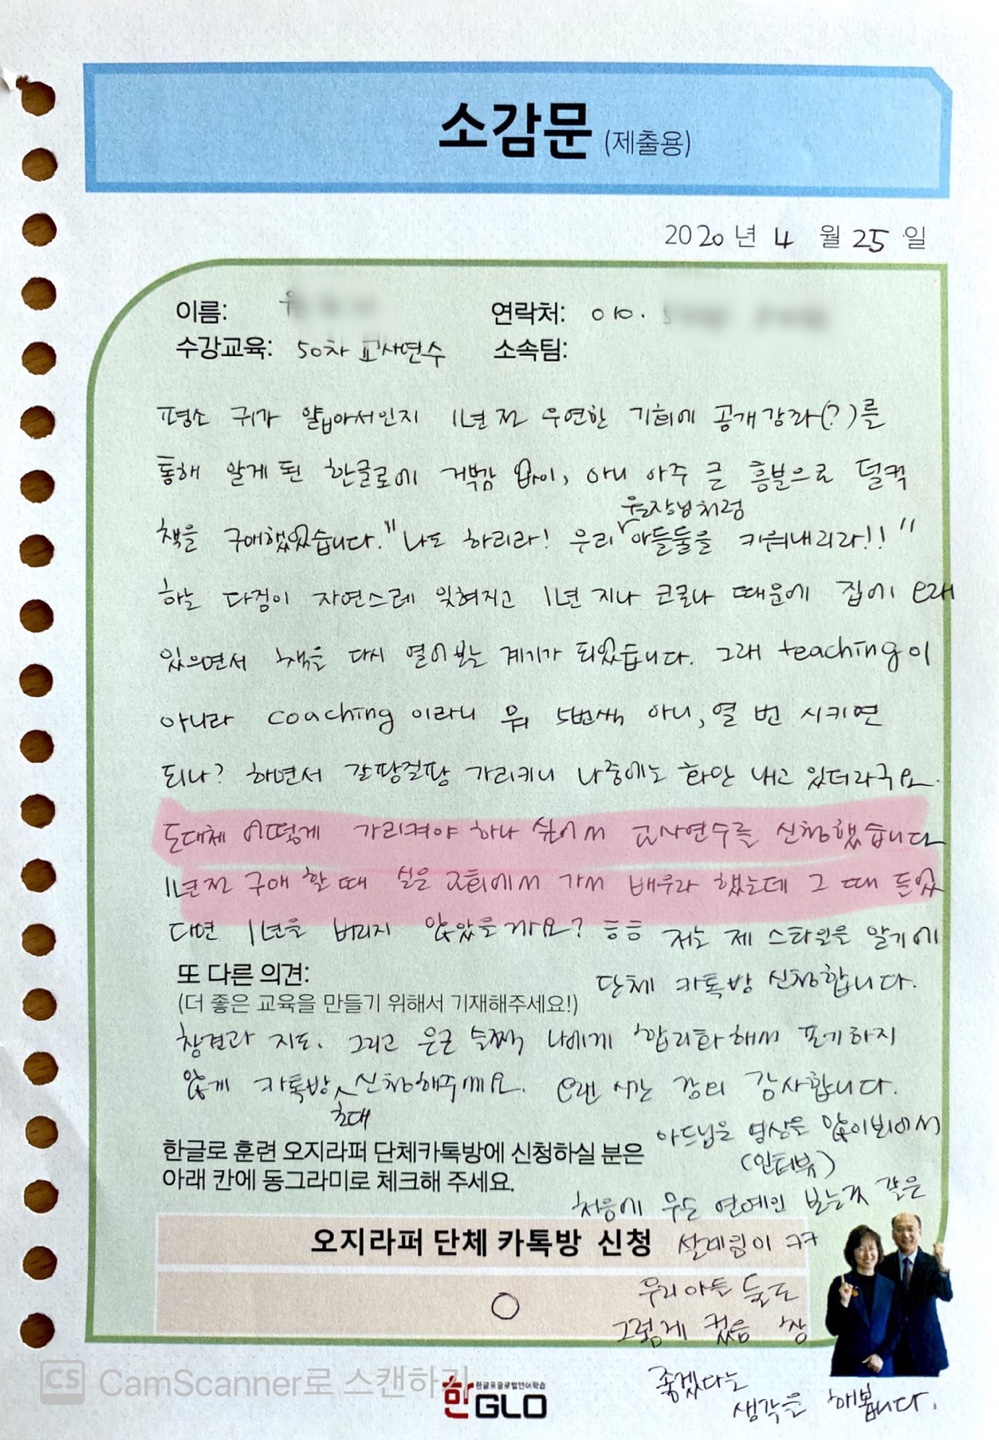 소감문 (제출용)
2020년 4월 25일
이름:
연락처: 010.
수강교육: 50차 교사연수
소속팀:
평소 귀가 얇아서인지 1년 전 우연한 기회에 공개강좌(?)를
통해 알게 된 한글로에 거부감 없이, 아니 아주 큰 흥분으로 덜컥
원장님처럼
책을 구매했었습니다. "나도 하리라! 우리 아들둘을 키워내리라!!"
하는 다짐이 자연스레 잊혀지고 1년 지나 코로나 때문에 집에 오래
있으면서 책을 다시 열어보는 계기가 되었습니다. 그래 teaching이
아니라 coaching이라니 뭐 5번씩 아니, 열 번 시키면
되나? 하면서 갈팡질팡 가리키니 나중에는 화만 내고 있더라구요.
도대체 어떻게 가리켜야 하나 싶어서 교사연수를 신청했습니다
1년전 구매 할 때 실은 교회에서 가서 배우라 했는데 그 때 들었
다면 1년을 버리지 않았을까요? 흠흠 저는 제 스타일을 알기에
단체 카톡방 신청합니다.
또 다른 의견:
(더 좋은 교육을 만들기 위해서 기재해주세요!)
참견과 지도. 그리고 은근 슬쩍 나에게 합리화해서 포기하지
않게 카톡방 신청해주세요. 오랜 시간 강의 감사합니다.
초대
아드님은 영상을 많이 봐서
(인터뷰)
한글로 훈련 오지라퍼 단체카톡방에 신청하실 분은
아래 칸에 동그라미로 체크해 주세요.
처음에 무슨 연예인 보는것 같은
오지라퍼 단체 카톡방 신청
설레임이 ㅋㅋ
우리 아들 둘도
○
그렇게 컸음 참
좋겠다는
생각을 해봅니다.
CS CamScanner로 스캔하기
한글포글로벌언어학습
한GLO